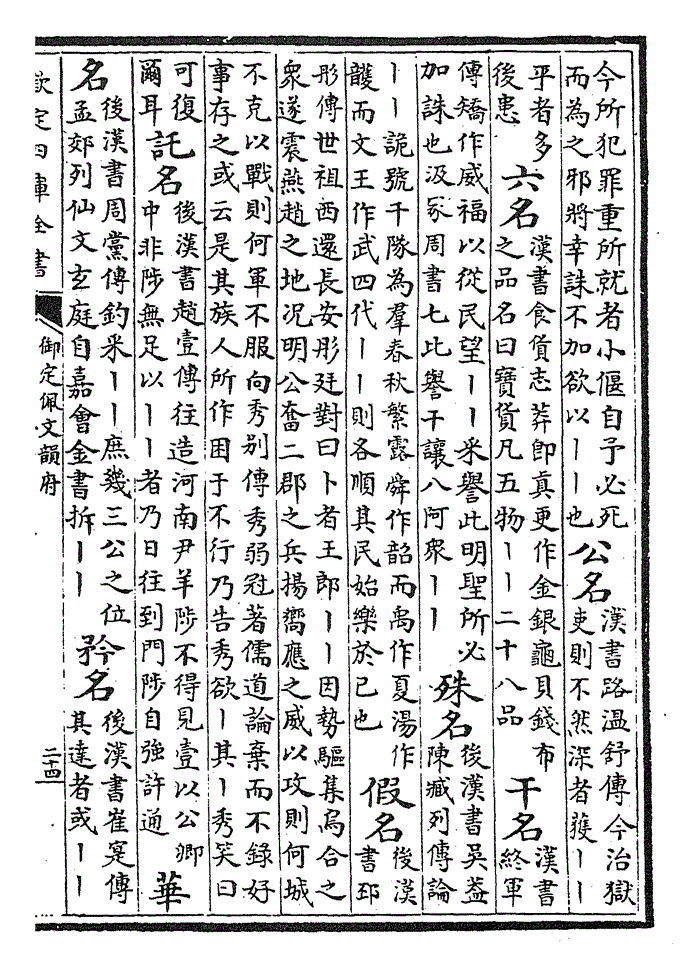 今所犯罪重所就者小偃自予必死
而為之邪將幸誅不加欲以丨丨也
公名
漢書路溫舒傳今治獄
吏則不然深者獲丨丨
平者多
後患
六名
漢書食貨志莽即真更作金銀龜貝錢布
之品名曰寶貨凡五物丨丨二十八品
干名
漢書
終軍
傳矯作威福以從民望丨丨采譽此明聖所必
加誅也汲冢周書七比譽干讓八阿衆丨丨
殊名
後漢書吳蓋
陳臧列傳論
丨丨詭號千隊為羣春秋繁露舜作韶而禹作夏湯作
頀而文王作武四代丨丨則各順其民始樂於已也
假名
後漢
書邳
彤傳世祖西還長安彤廷對曰卜者王郎丨丨因勢驅集烏合之
衆遂震燕趙之地况明公奮二郡之兵揚嚮應之威以攻則何城
不克以戰則何軍不服向秀别傳秀弱冠著儒道論棄而不錄好
事存之或云是其族人所作困于不行乃告秀欲丨其丨秀笑曰
可復
爾耳
託名
後漢書趙壹傳往造河南尹羊陟不得見壹以公卿
中非陟無足以丨丨者乃日往到門陟自強許通
華
名
後漢書周黨傳釣采丨丨庶幾三公之位
孟郊列仙文玄庭自嘉會金書拆丨丨
矜名
後漢書崔寔傳
其達者或丨丨
欽定四庫全書
御定佩文韻府
二十四